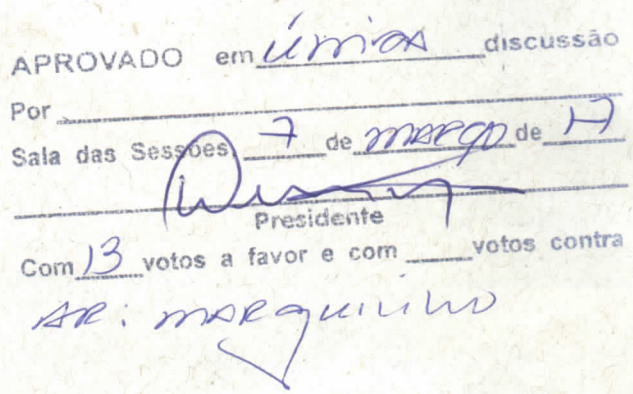 APROVADO em única discussão
Por
Sala das Sessões, 7 de março de 17
Presidente
Com 13 votos a favor e com votos contra
AR: MARQUINHO